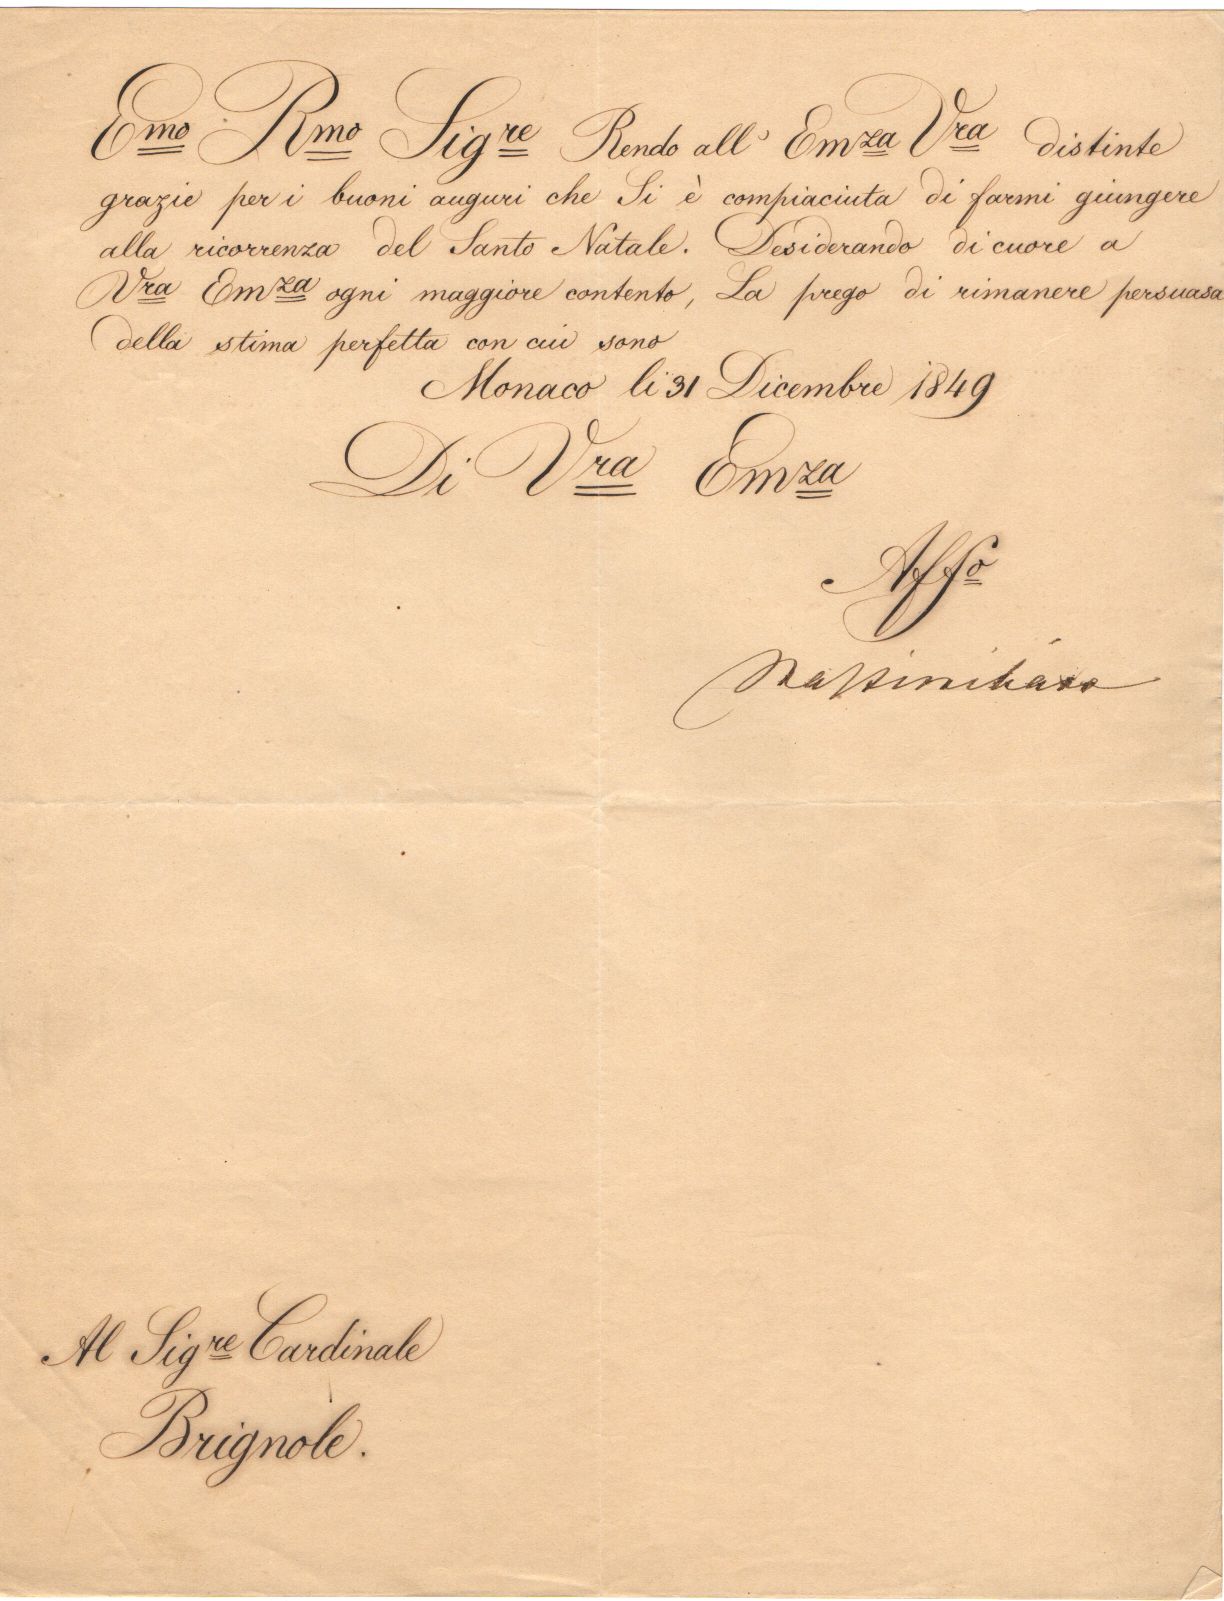 Emo Rmo Sigre Rendo all' Emza Vra distinte
grazie per i buoni auguri che Si è compiaciuta di farmi giungere
alla ricorrenza del Santo Natale. Desiderando di cuore a
Vra Emza ogni maggiore contento, La prego di rimanere persuasa
della stima perfetta con cui sono
Monaco li 31 Dicembre 1849
Di Vra Emza
Affo
Massimiliano
Al Sigre Cardinale
Brignole.